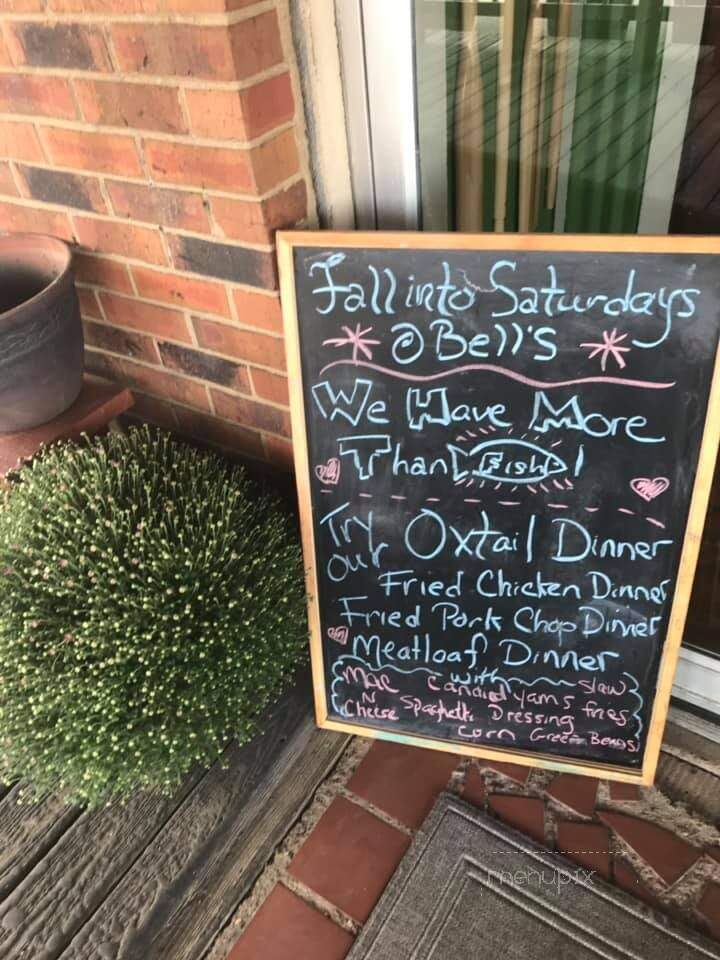 Fall into Saturdays
@ Bell's
We Have More
Than Fish!
Try our Oxtail Dinner
Fried Chicken Dinner
Fried Pork Chop Dinner
Meatloaf Dinner
with
Mac N Cheese Candied Yams Slaw
Spaghetti Dressing fries
Corn Green Beans
menupix